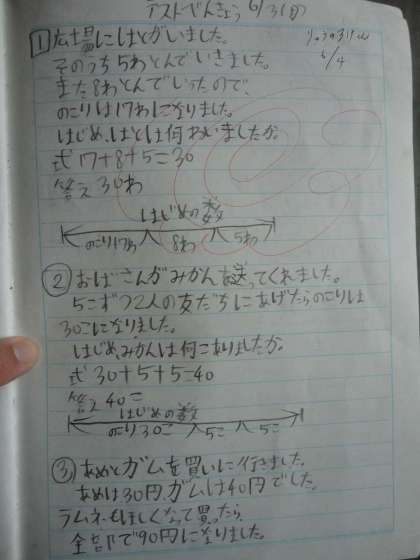 テストべんきょう 6/3(日)
6/4
1 広場にはとがいました。
そのうち5わとんでいきました。
また8わとんでいったので、
のこりは17わになりました。
はじめ、はとは何わいましたか。
式 17+8+5=30
答え 30わ
はじめの数
のこり17わ 8わ 5わ
② おばさんがみかんを送ってくれました。
5こずつ2人の友だちにあげたらのこりは
30こになりました。
はじめ、みかんは何こありましたか。
式 30+5+5=40
答え 40こ
はじめの数
のこり30こ 5こ 5こ
③ あめとガムを買いに行きました。
あめは30円、ガムは40円でした。
ラムネもほしくなって買ったら、
全部で90円になりました。